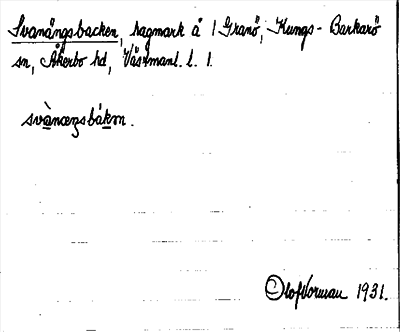 Svanängsbacken, hagmark å 1 Granö, Kungs-Barkarö
sn, Åkerbo hd, Västmanl. l. 1.
svànæŋsbákɘn.
Olof Norman 1931.